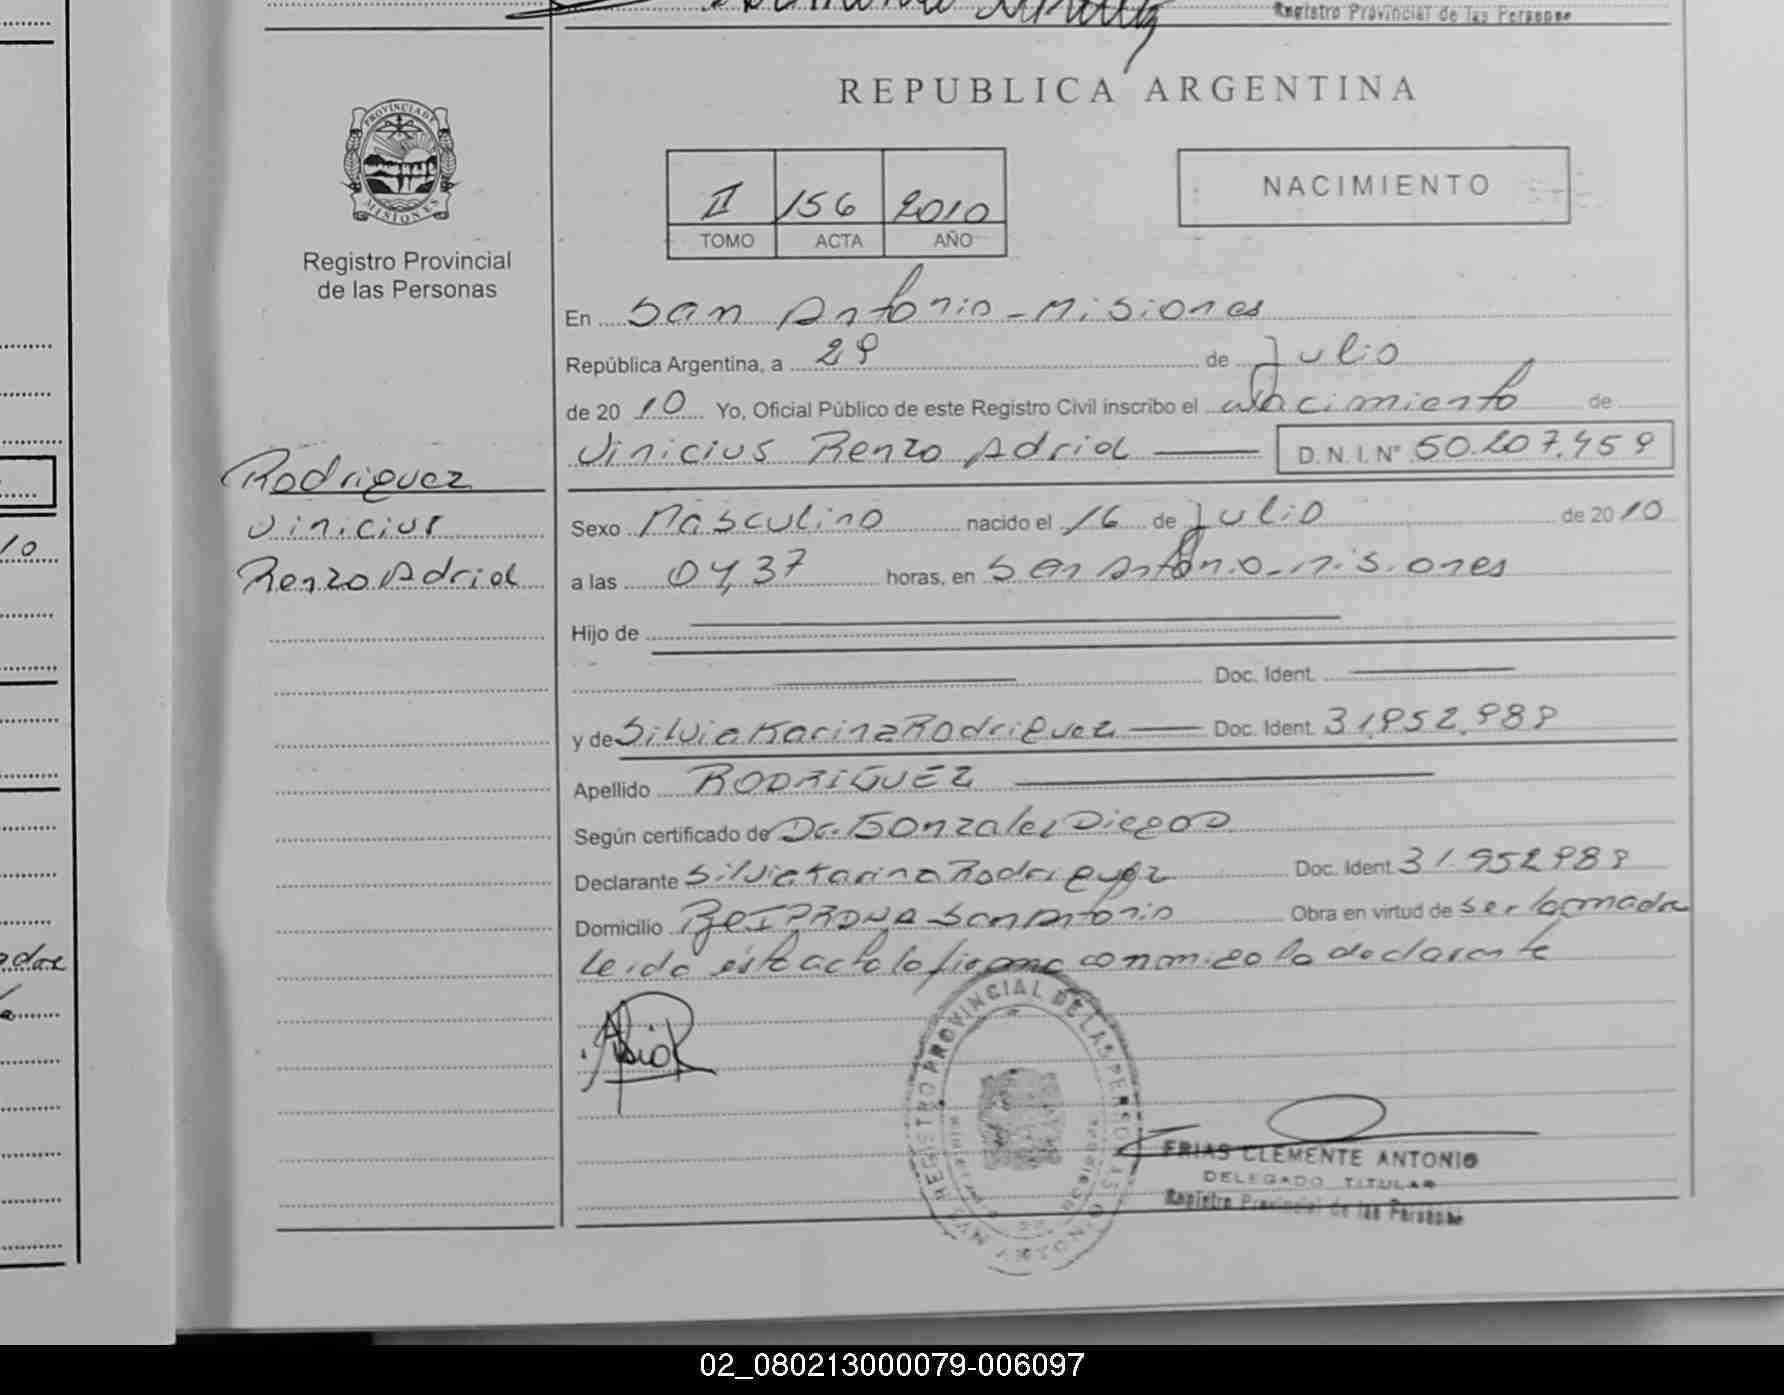 Registro Provincial de las Personas
REPUBLICA ARGENTINA
PROVINCIA DE MISIONES
Registro Provincial
de las Personas
II 156 2010
TOMO ACTA AÑO
NACIMIENTO
En San Antonio - Misiones
República Argentina, a 29 de Julio
de 2010 Yo, Oficial Público de este Registro Civil inscribo el Nacimiento de
Vinicius Renzo Adriel D.N.I. Nº 50.207.459
Rodriguez
Vinicius
Renzo Adriel
Sexo Masculino nacido el 16 de Julio de 2010
a las 04,37 horas, en San Antonio - Misiones
Hijo de
Doc. Ident.
y de Silvia Karina Rodriguez Doc. Ident. 31.952.989
Apellido RODRIGUEZ
Según certificado de Dr. Gonzalez Diego D
Declarante Silvia Karina Rodriguez Doc. Ident. 31.952989
Domicilio San Antonio Obra en virtud de ser la madre
Leida este acta la firma conmigo la declarante
REGISTRO PROVINCIAL DE LAS PERSONAS
FRIAS CLEMENTE ANTONIO
DELEGADO TITULAR
Registro Provincial de las Personas
02_080213000079-006097